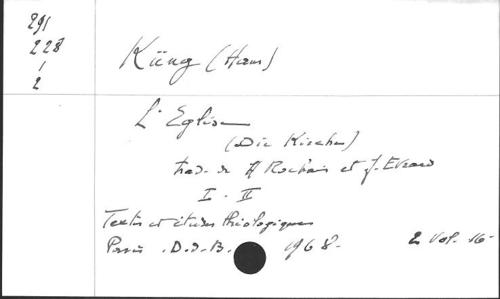 291
228
1
2
Küng (Hans)
L'Eglise
(Die Kirche)
trad. de H Rochais et J. Evrard
I - II
Textes et études théologiques
Paris . D.d.B. 1968 - 2 vol. 16-